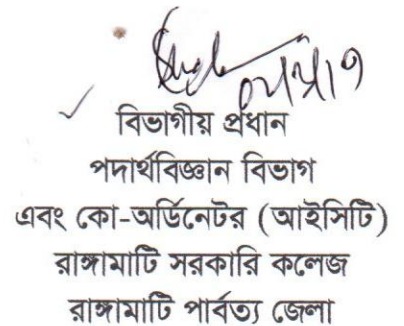 বিভাগীয় প্রধান
পদার্থবিজ্ঞান বিভাগ
এবং কো-অর্ডিনেটর (আইসিটি)
রাঙ্গামাটি সরকারি কলেজ
রাঙ্গামাটি পার্বত্য জেলা